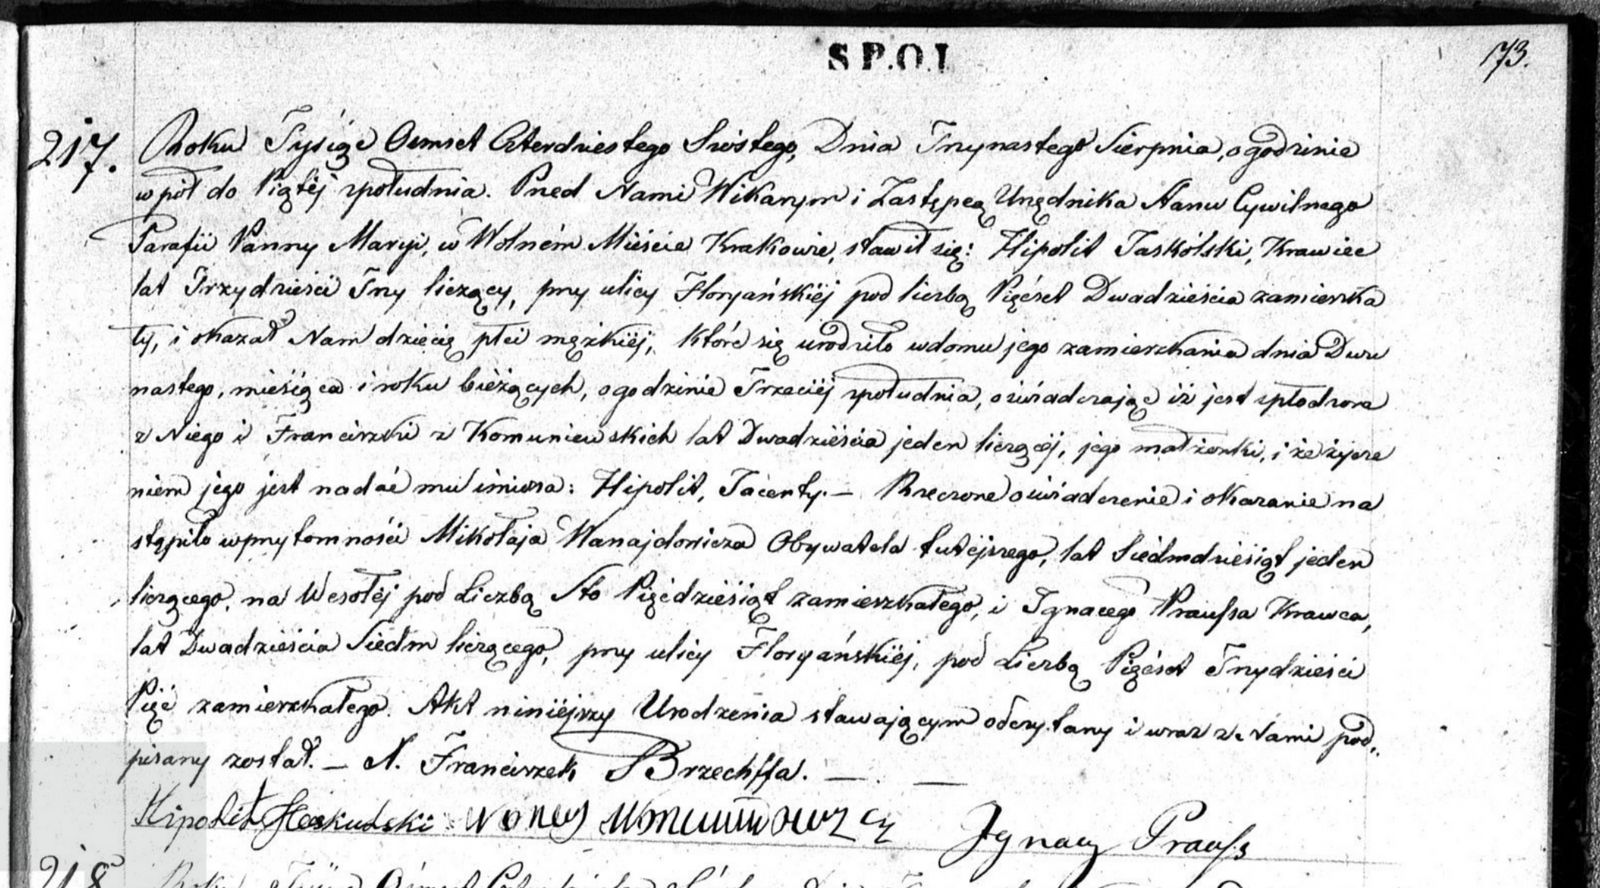 S P.O.J.
173.
217. Roku Tysiąc Ośmset Czterdziestego Szóstego, Dnia Trzynastego Sierpnia, o godzinie
w pół do Piątéj zpołudnia. Przed Nami Wikarym i Zastępcą Urzędnika Stanu Cywilnego
Parafii Panny Maryi, w Wolném Mieście Krakowie, stawił się: Hipolit Jaskólski, Krawiec
lat Trzydzieści Trzy liczący, przy ulicy Floryańskiéj pod liczbą Pięćset Dwadzieścia zamieszka
ły, i okazał Nam dziecię płci męzkiéj, które się urodziło w domu jego zamieszkania dnia Dwu
nastego, miesiąca i roku bieżących, o godzinie Trzeciéj zpołudnia, oświadczając iż jest spłodzone
z Niego i Franciszki z Komuniewskich lat Dwadzieścia jeden liczącéj, jego małżonki, i że życze
niem jego jest nadać mu imiona: Hipolit, Jacenty. — Rzeczone oświadczenie i okazanie na
stąpiło w przytomności Mikołaja Wanajdowicza Obywatela tutéjszego, lat Siedmdziesiąt jeden
liczącego, na Wesołéj pod Liczbą Sto Pięćdziesiąt zamieszkałego, i Ignacego Praussa Krawca,
lat Dwadzieścia Siedm liczącego, przy ulicy Floryańskiéj, pod Liczbą Pięćset Trzydzieści
Pięć zamieszkałego. Akt niniéjszy Urodzenia stawającym odczytany i wraz z Nami pod„
pisany został. — X. Franciszek Brzechffa. — . —
Hipolit Jaskulski Ignacy Prauss
218 Roku